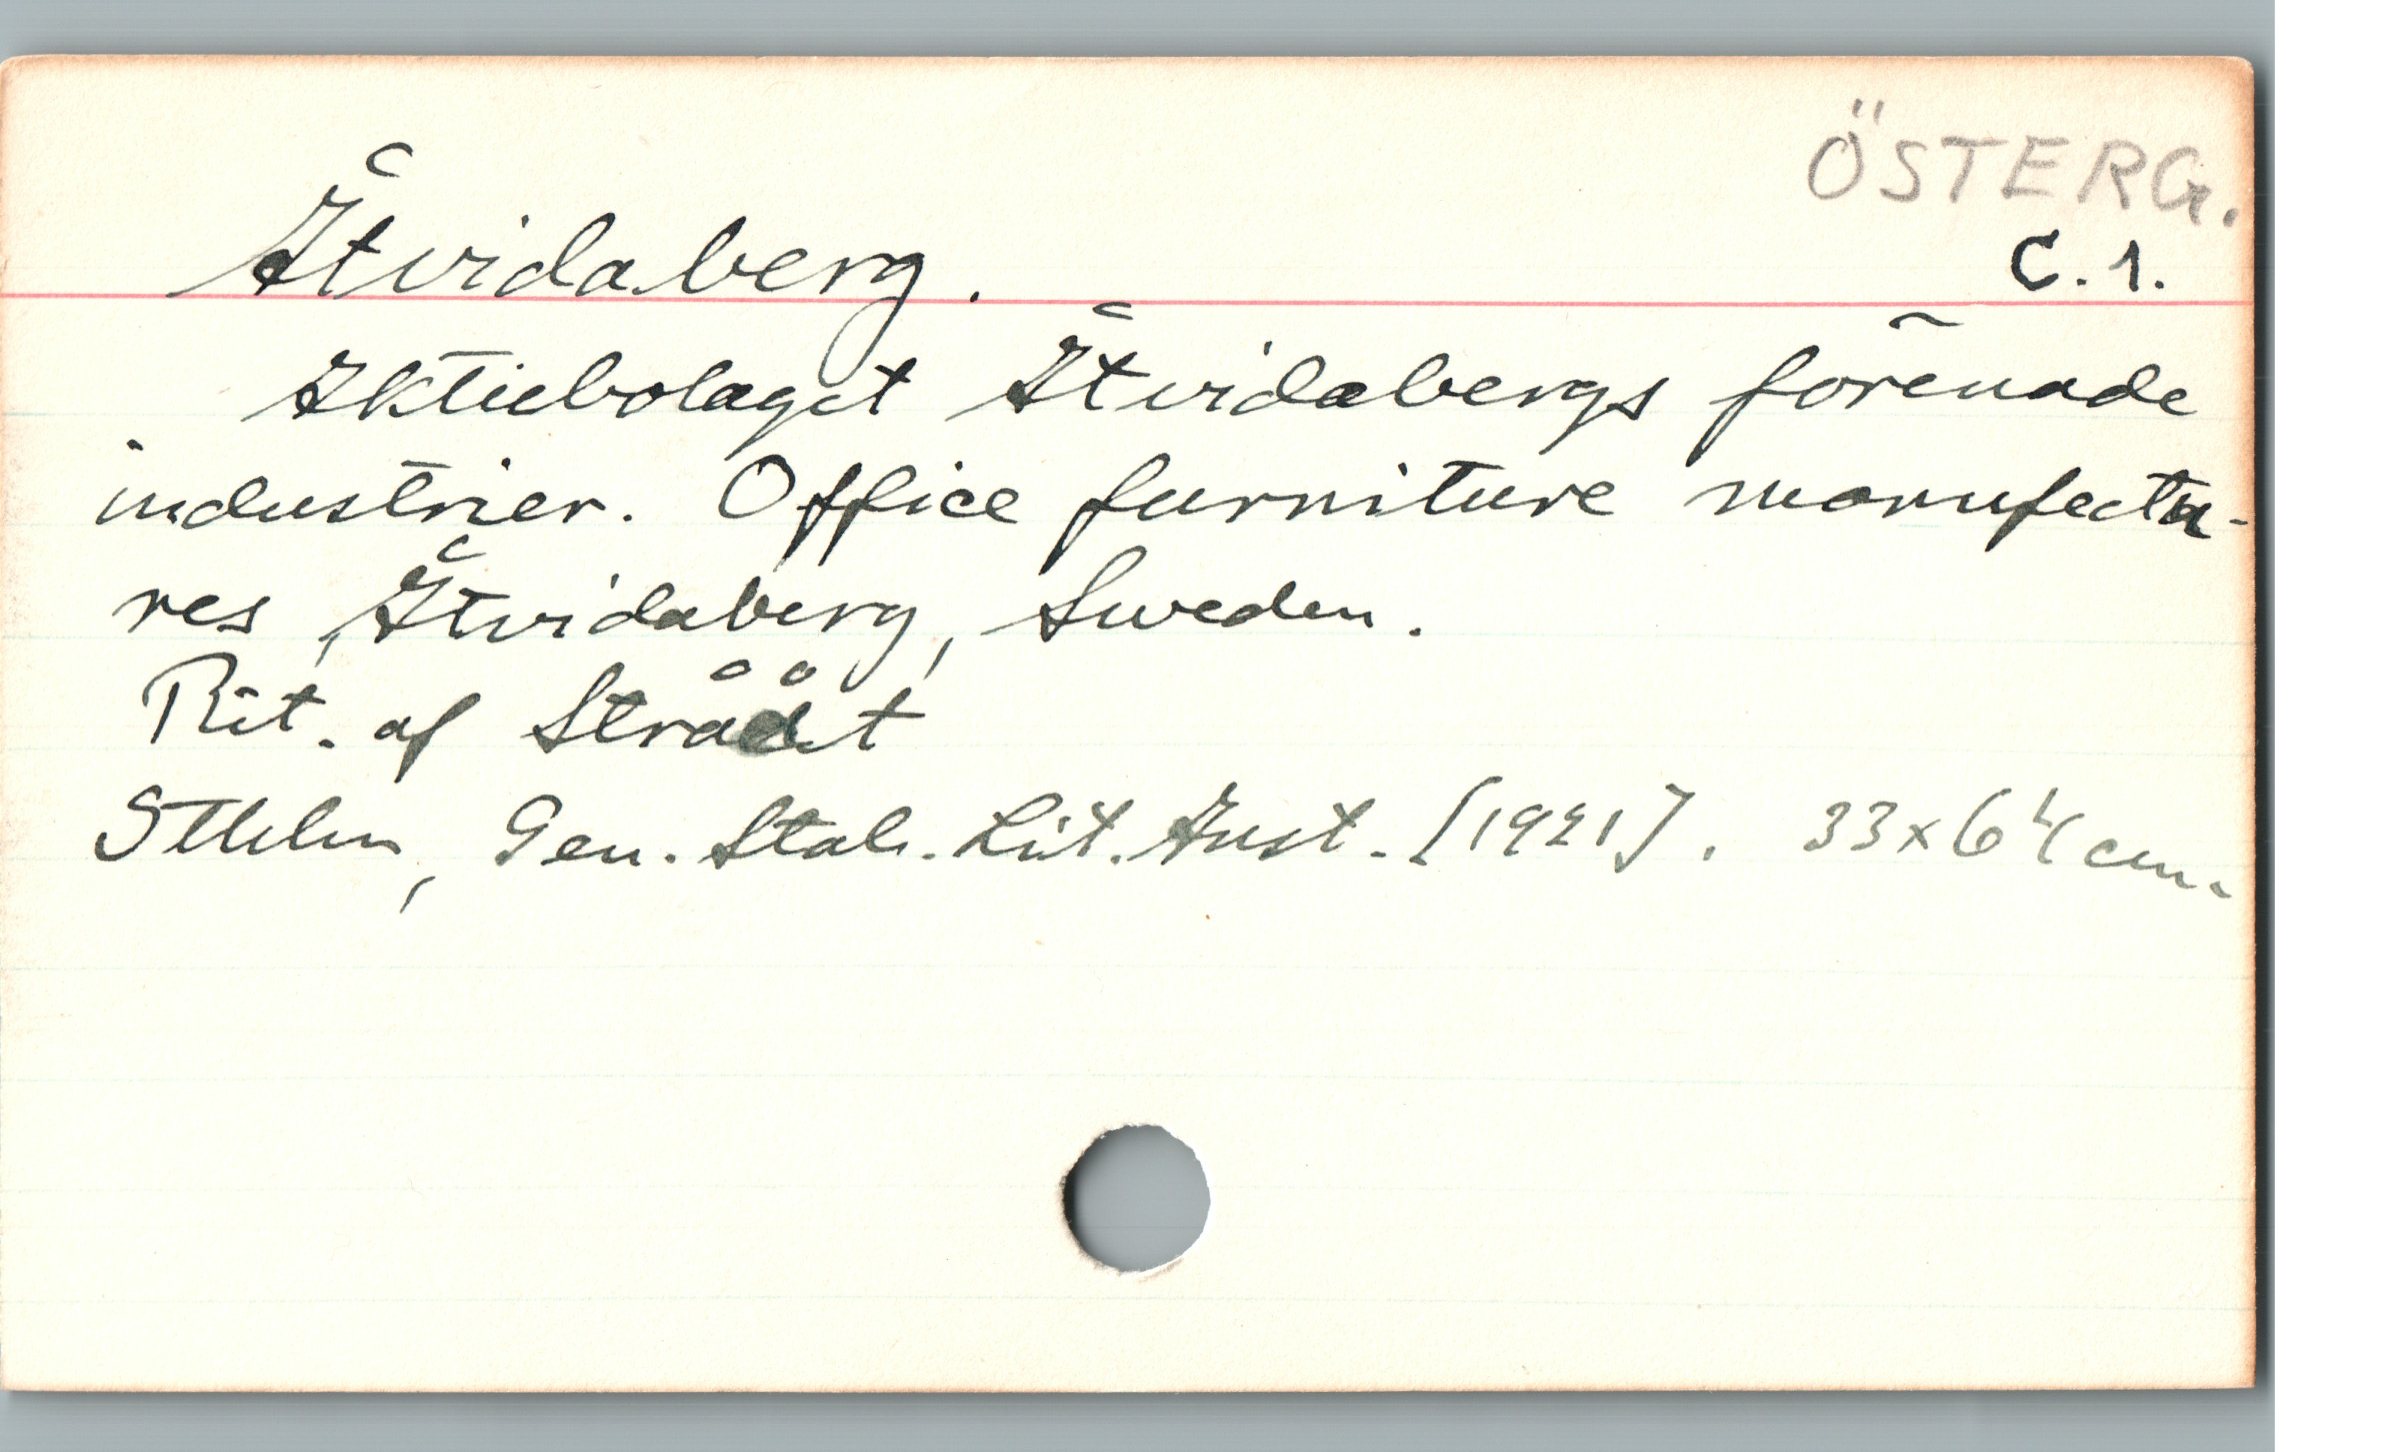 ÖSTERG.
Åtvidaberg.
C. 1.
Aktiebolaget Åtvidabergs förenade
industrier. Office furniture manufactu-
res, Åtvidaberg, Sweden.
Rit. af Stråååt
Sthlm, Gen. Stab. Lit. Anst. [1921]. 33x64 cm.